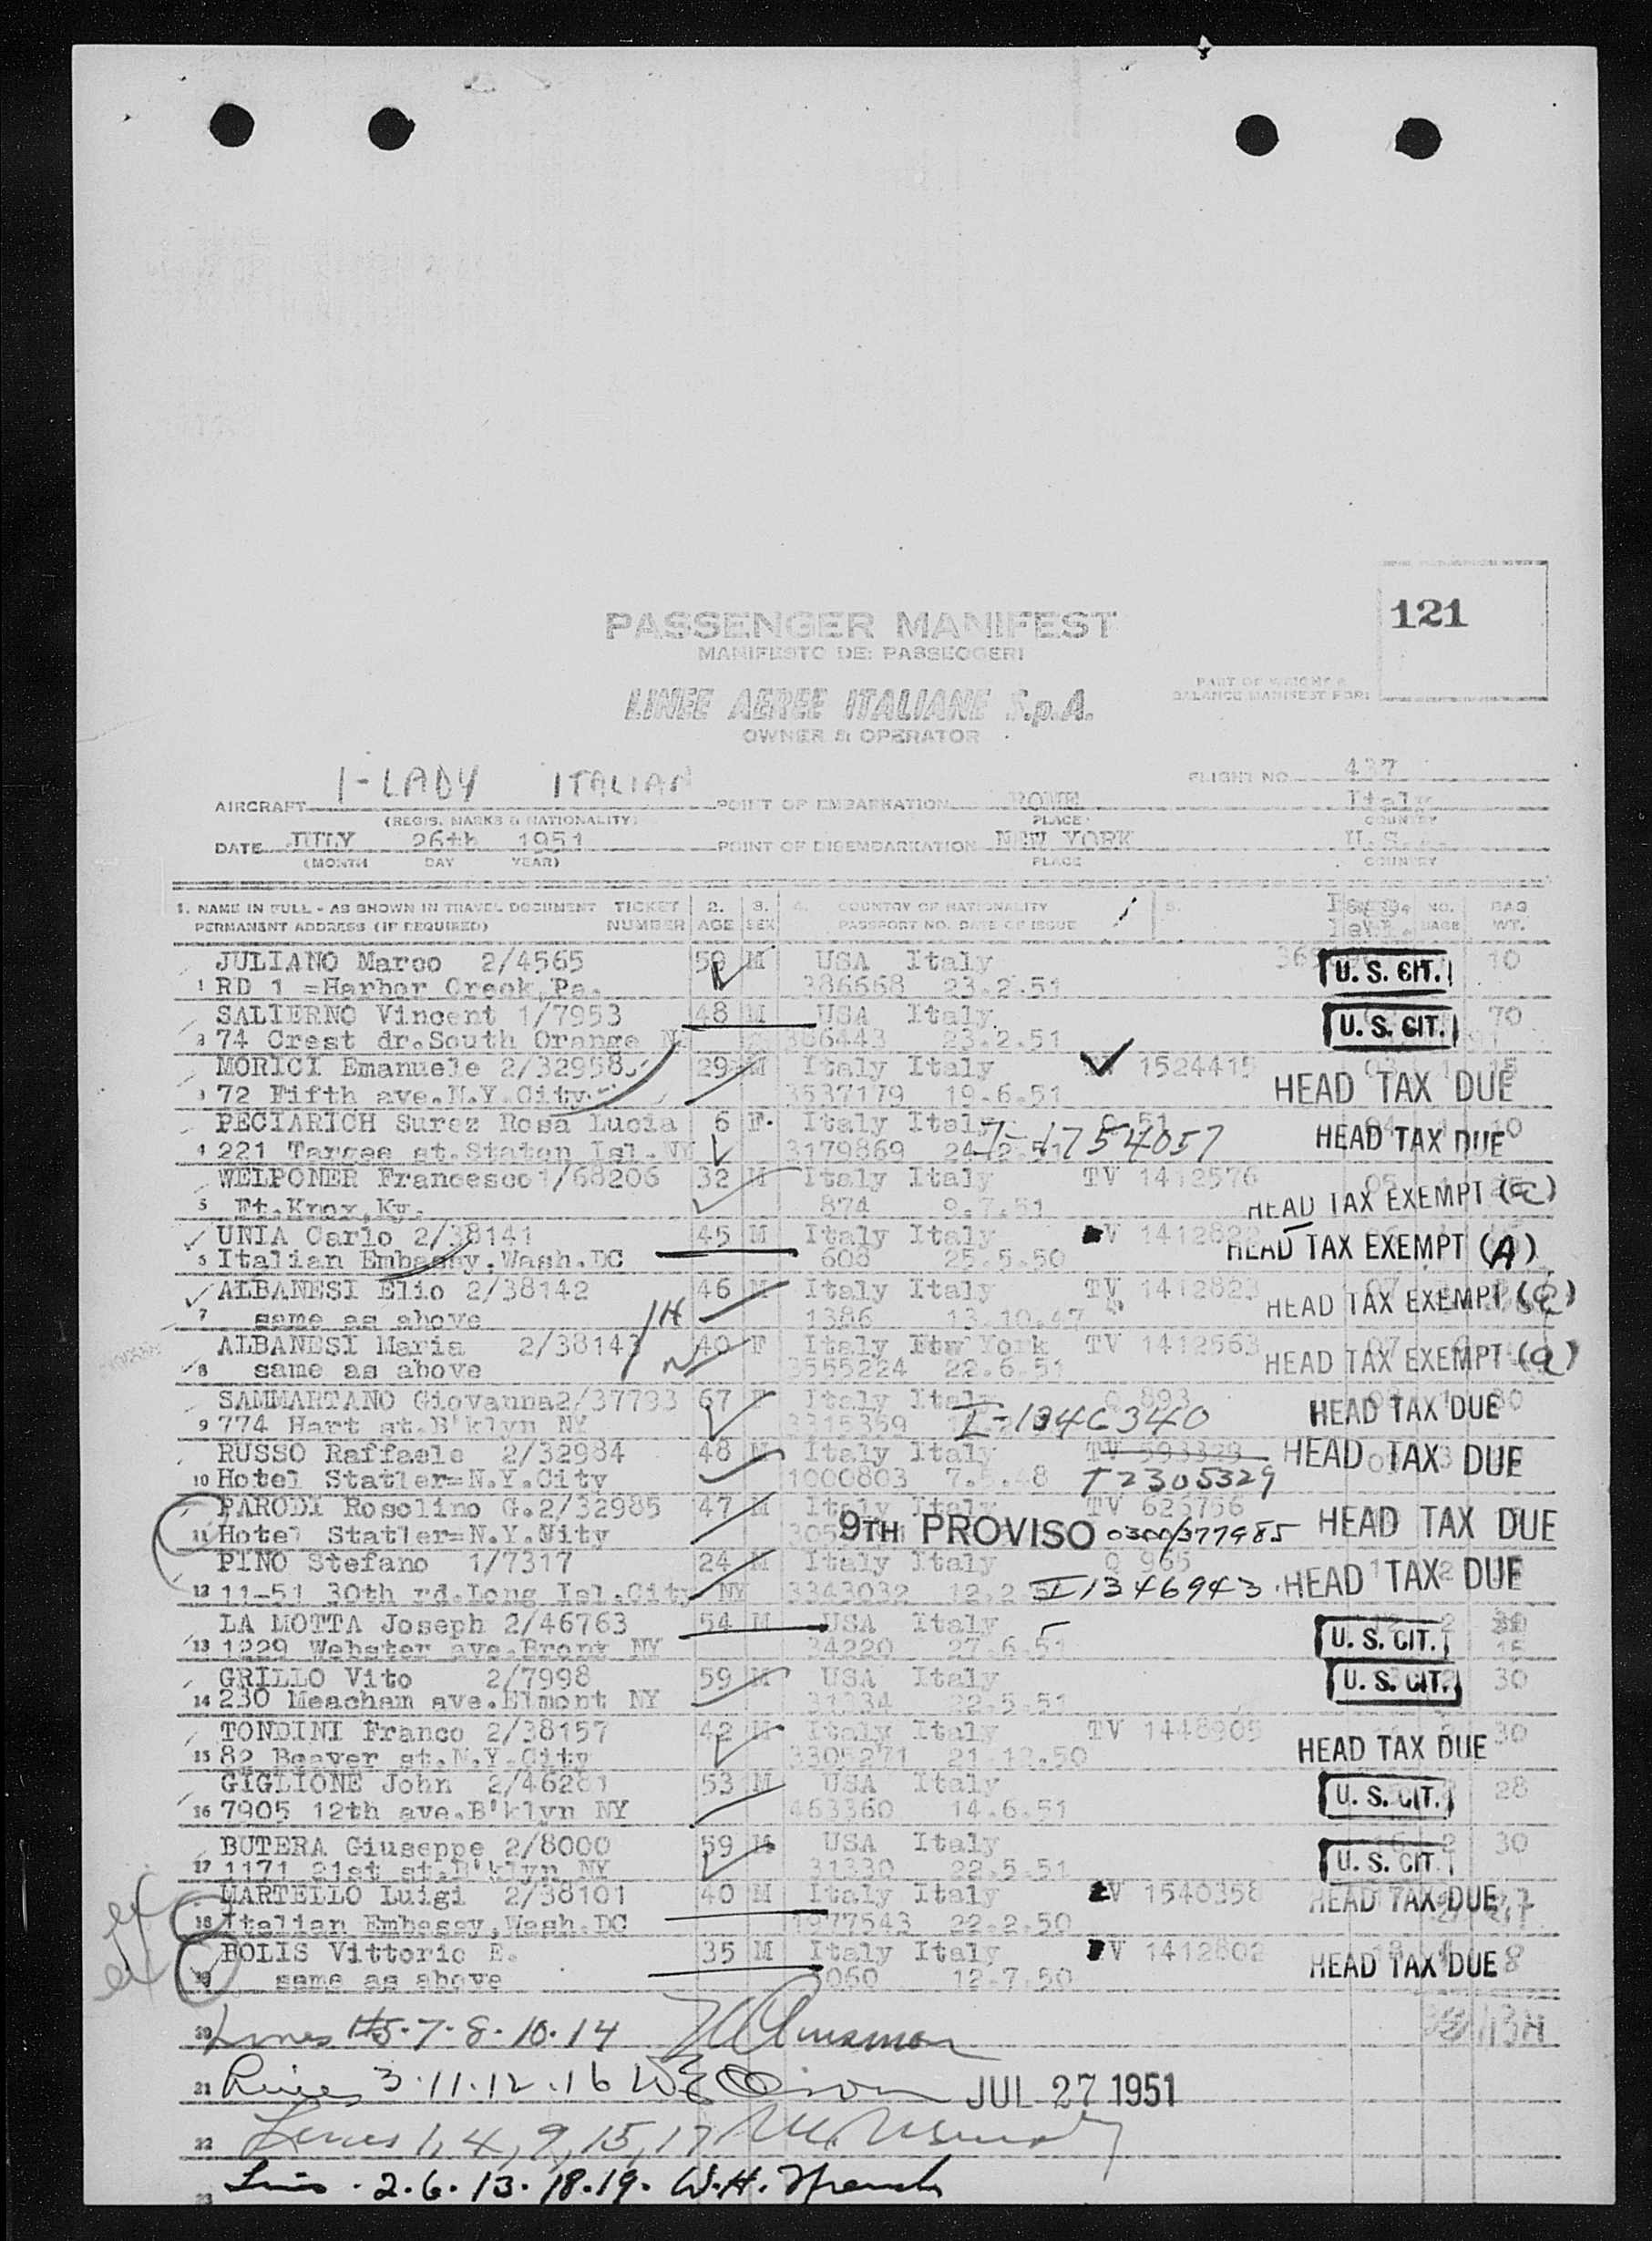 121
PASSENGER MANIFEST
MANIFESTO DEI PASSEGGERI
PART OF WEIGHT &
BALANCE MANIFEST FOR:
LINEE AEREE ITALIANE S.p.A.
OWNER & OPERATOR
FLIGHT NO. 437
AIRCRAFT I-LADY ITALIAN POINT OF EMBARKATION ROME Italy
(REGIS. MARKS & NATIONALITY) PLACE COUNTRY
DATE JULY 26th 1951 POINT OF DISEMBARKATION NEW YORK U.S.
(MONTH DAY YEAR) PLACE COUNTRY
1. NAME IN FULL - AS SHOWN IN TRAVEL DOCUMENT TICKET 2. 3. 4. COUNTRY OF NATIONALITY 5. NO. BAG
PERMANENT ADDRESS (IF REQUIRED) NUMBER AGE SEX PASSPORT NO. DATE OF ISSUE BAGS WT.
JULIANO Marco 2/4565 M USA Italy U. S. CIT. 10
1 RD 1 =Harbor Creek,Pa. 386668 23.2.51
SALIERNO Vincent 1/7953 48 M USA Italy U. S. CIT. 70
74 Crest dr.South Orange 386443 23.2.51
MORICI Emanuele 2/32958 29 M Italy Italy 1524415 HEAD TAX DUE
72 Fifth ave.N.Y.City 3537179 19.6.51
PECIARICH Surez Rosa Lucia 6 F. Italy Italy HEAD TAX DUE 10
4 221 Targee st.Staten Isl.NY 3179869 1754057
WELPONER Francesco 1/68206 32 M Italy Italy TV 1412576 HEAD TAX EXEMPT (a)
5 Ft.Knox,Ky. 874 9.7.51
UNIA Carlo 2/38141 45 M Italy Italy V 1412822 HEAD TAX EXEMPT (A)
Italian Embassy,Wash.DC 608 25.5.50
ALBANESI Elio 2/38142 46 M Italy Italy TV 1412823 HEAD TAX EXEMPT (a)
7 same as above 1386 13.10.47
ALBANESI Maria 2/38143 40 F Italy York TV 1412563 HEAD TAX EXEMPT (a)
8 same as above 3555224 22.6.51
SAMMARTANO Giovanna 2/37793 67 F Italy Italy Q 893 HEAD TAX DUE 30
9 774 Hart st.B'klyn NY 3315359 I-1346340
RUSSO Raffaele 2/32984 48 M Italy Italy TV 593329 HEAD TAX DUE
10 Hotel Statler=N.Y.City 1000803 7. .48 T2305329
PARODI Rosolino G.2/32985 47 M Italy Italy TV 623756 HEAD TAX DUE
11 Hotel Statler=N.Y.Nity 9TH PROVISO 0300/377985
PINO Stefano 1/7317 24 M Italy Italy Q 965 HEAD TAX DUE
12 11-51 30th rd.Long Isl.City NY 3343032 12.2.51 I1346943
LA MOTTA Joseph 2/46763 54 M USA Italy U. S. CIT.
13 1229 Webster ave.Bronx NY 34220 27.6.51 15
GRILLO Vito 2/7998 59 M USA Italy U. S. CIT. 30
14 230 Meacham ave.Elmont NY 31334 22.5.51
TONDINI Franco 2/38157 42 M Italy Italy TV 1448905 HEAD TAX DUE 30
15 82 Beaver st.N.Y.City 3305271 21.12.50
GIGLIONE John 2/46281 53 M USA Italy U. S. CIT. 28
16 7905 12th ave.B'klyn NY 463360 14.6.51
BUTERA Giuseppe 2/8000 59 M USA Italy U. S. CIT. 30
17 1171 21st st.B'klyn NY 31330 22.5.51
MARTELLO Luigi 2/38101 40 M Italy Italy V 1540358 HEAD TAX DUE
18 Italian Embassy,Wash.DC 1977543 22.2.50
BOLIS Vittorio E. 35 M Italy Italy V 1412802 HEAD TAX DUE 8
19 same as above 5060 12.7.50
20 Lines #5.7.8.10.14
21 Lines 3.11.12.16 JUL 27 1951
22 Lines 1,4,9,15,17
23 Lines .2.6.13.18.19. W.H. French